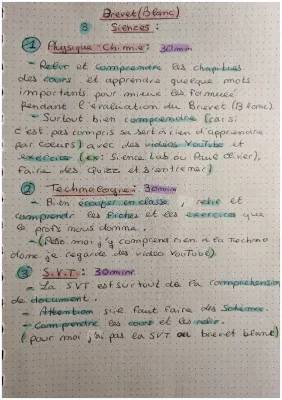 Brevet (Blanc)
3 Siences :
1 Physique-Chimie : 30min
- Relir et comprendre les chapitres
des cours et apprendre quelque mots
importants pour mieux les formuler
pendant l'évaluation du Brevet (Blanc)
- Surtout bien comprendre (car si
c'est pas compris sa sert à rien d'apprendre
par cœurs) avec des vidéos YouTube et
exercice (ex: Sience Lab ou Paul Olivier),
faire des Quizz et s'entrainer)
2 Technologie : 30min
- Bien écouter en classe, relir et
comprendr les fiches et les exercices que
le profs nous donne.
(Perso moi j'y comprend rien à la Techno
donc je regarde des video YouTube).
3 S.V.T : 30min
- La SVT est surtout de la compréhension
de document.
- Attention sur faut faire des Schémas.
- Comprendre les cours et les relir.
(pour moi j'ai pas la SVT au brevet blanc)